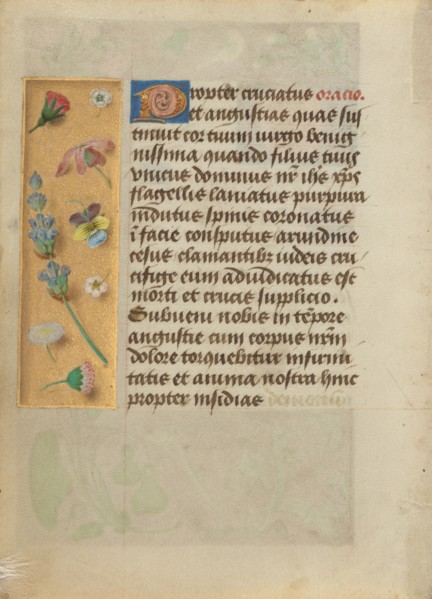 Propter cruciatus oracio.
et angustias quas sus
tinuit cor tuum uirgo benig
nissima quando filius tuus
vnicus dominus nr ihs xps
flagellis laniatus purpura
indutus spinis coronatus
i facie consputus arundine
cesus clamantibz iudeis cru
cifige eum adiudicatus est
morti et crucis supplicio.
Subueni nobis in tempore
angustie cum corpus nrm
dolore torquebitur infirmi
tatis et anima nostra hinc
propter insidias